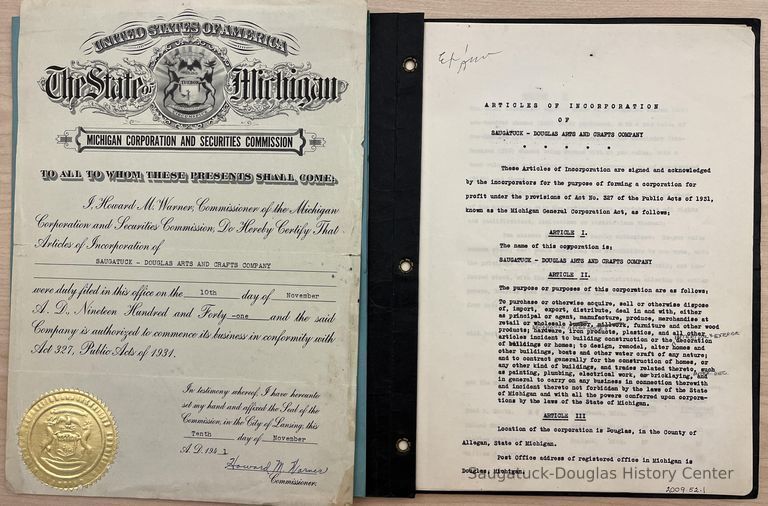 UNITED STATES OF AMERICA
The State of Michigan
MICHIGAN CORPORATION AND SECURITIES COMMISSION
TO ALL TO WHOM THESE PRESENTS SHALL COME:
I, Howard M. Warner, Commissioner of the Michigan
Corporation and Securities Commission, Do Hereby Certify That
Articles of Incorporation of
SAUGATUCK - DOUGLAS ARTS AND CRAFTS COMPANY
were duly filed in this office on the 10th day of November
A. D. Nineteen Hundred and Forty -one and the said
Company is authorized to commence its business in conformity with
Act 327, Public Acts of 1931.
In testimony whereof, I have hereunto
set my hand and affixed the Seal of the
Commission, in the City of Lansing, this
Tenth day of November
A. D. 194 1
Howard M. Warner
Commissioner.
ARTICLES OF INCORPORATION
OF
SAUGATUCK - DOUGLAS ARTS AND CRAFTS COMPANY
* * * * *
These Articles of Incorporation are signed and acknowledged
by the incorporators for the purpose of forming a corporation for
profit under the provisions of Act No. 327 of the Public Acts of 1931,
known as the Michigan General Corporation Act, as follows;
ARTICLE I.
The name of this corporation is;
SAUGATUCK - DOUGLAS ARTS AND CRAFTS COMPANY
ARTICLE II.
The purpose or purposes of this corporation are as follows:
To purchase or otherwise acquire, sell or otherwise dispose
of, import, export, distribute, deal in and with, either
as principal or agent, manufacture, produce, merchandise at
retail or wholesale lumber, millwork, furniture and other wood
products; hardware, iron products, plastics, and all other
articles incident to building construction or the decoration
of buildings or homes; to design, remodel, alter homes and
other buildings, boats and other water craft of any nature;
and to contract generally for the construction of homes, or
any other kind of buildings, and trades related thereto, such
as painting, plumbing, electrical work, bricklaying, and
in general to carry on any business in connection therewith
and incident thereto not forbidden by the laws of the State
of Michigan and with all the powers conferred upon corpora-
tions by the laws of the State of Michigan.
ARTICLE III
Location of the corporation is Douglas, in the County of
Allegan, State of Michigan.
Post Office address of registered office in Michigan is
Douglas, Michigan.
Saugatuck-Douglas History Center
2009.52.1